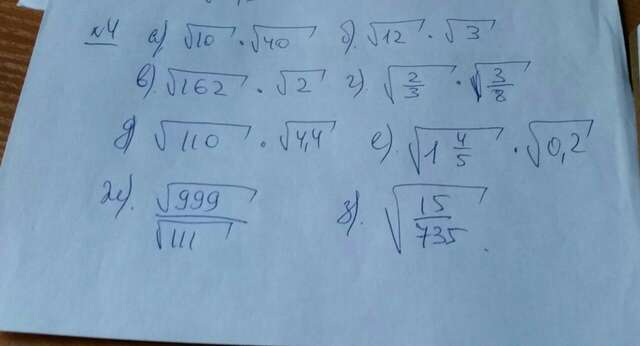 №4 а) √10 · √40 б) √12 · √3
в) √162 · √2 г) √(2/3) · √(3/8)
д) √110 · √4,4 е) √(1 4/5) · √0,2
ж) √999/√111 з) √(15/735)